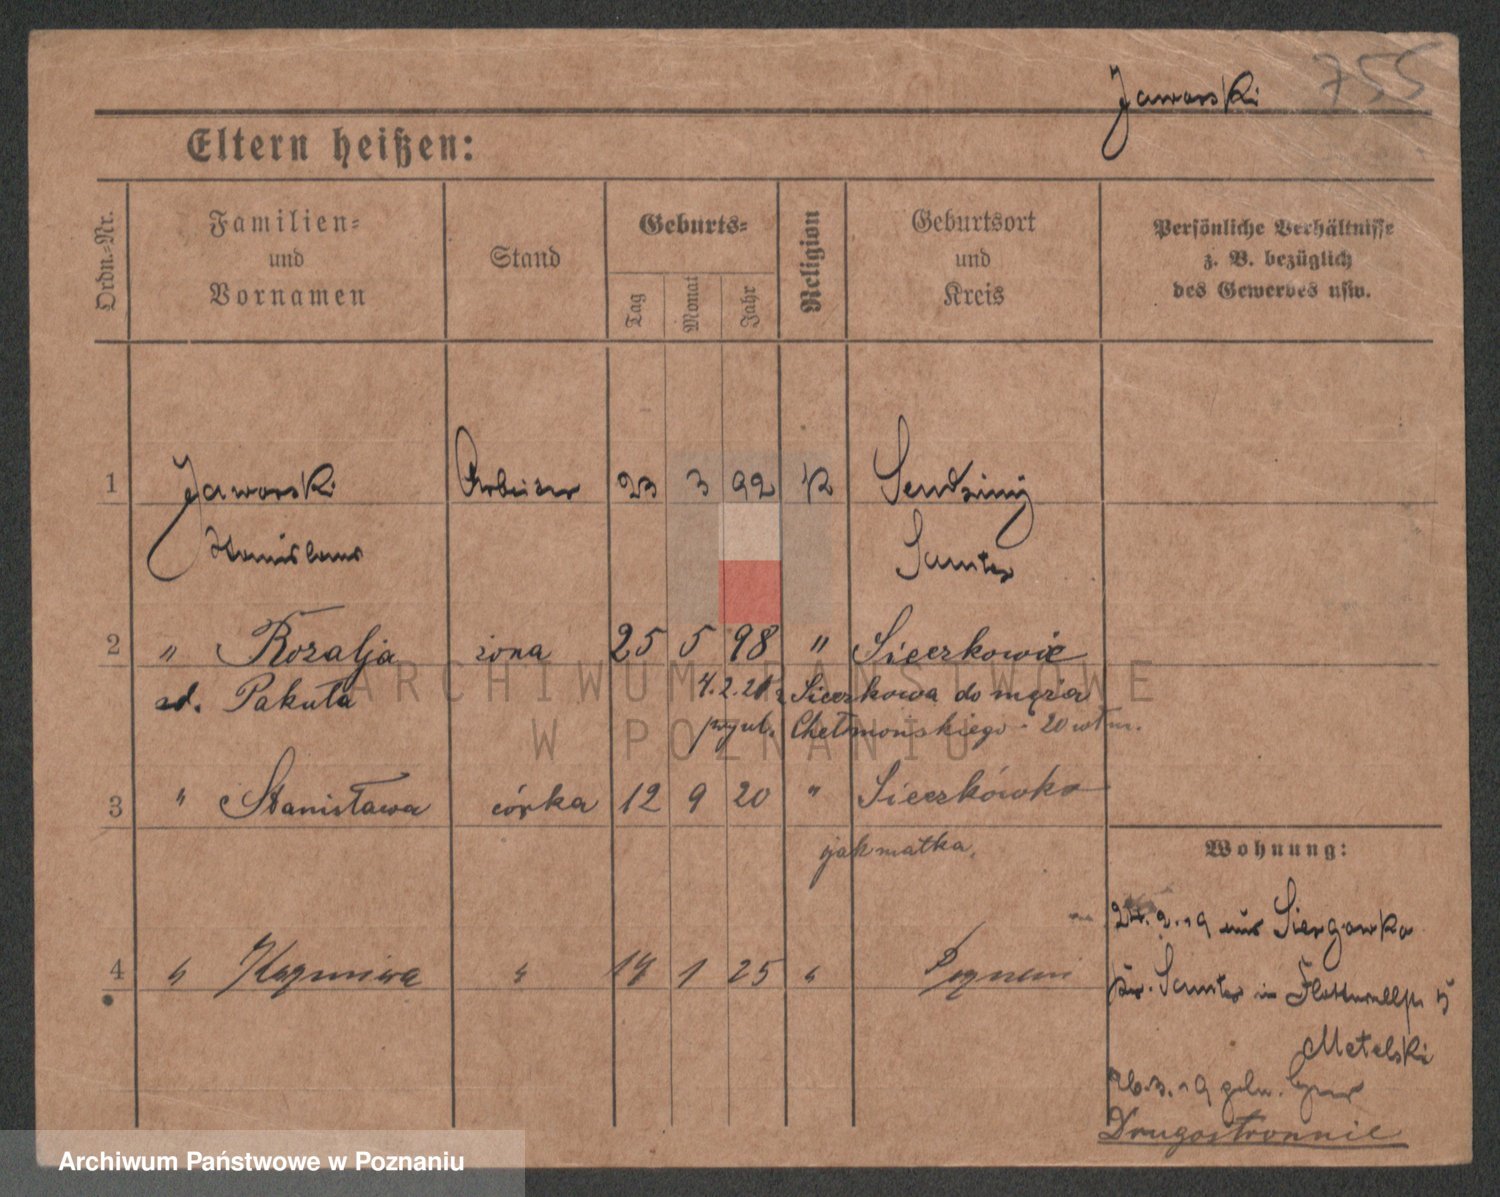 755
Jaworski
Eltern heißen:
Ordn.-Nr.
Familien-
und
Vornamen
Stand
Geburts-
Tag
Monat
Jahr
Religion
Geburtsort
und
Kreis
Persönliche Verhältnisse
z. B. bezüglich
des Gewerbes usw.
1 Jaworski Arbeiter 23 3 92 K
Stanislaus Samter
2 " Rozalja żona 25 5 98 " Sieczkowie
Pakuła 4.2.21 Sieczkowa do męża
Chełmońskiego 20
3 " Stanisława córka 12 9 20 " Sieczkówko
jak matka.
4 " Kazmiera " 14 1 25 " Poznań
Wohnung:
24.2.19 aus
Kr. Samter in 5
Metelski
26.3.19
Drugostronnie
ARCHIWUM PAŃSTWOWE
W POZNANIU
Archiwum Państwowe w Poznaniu